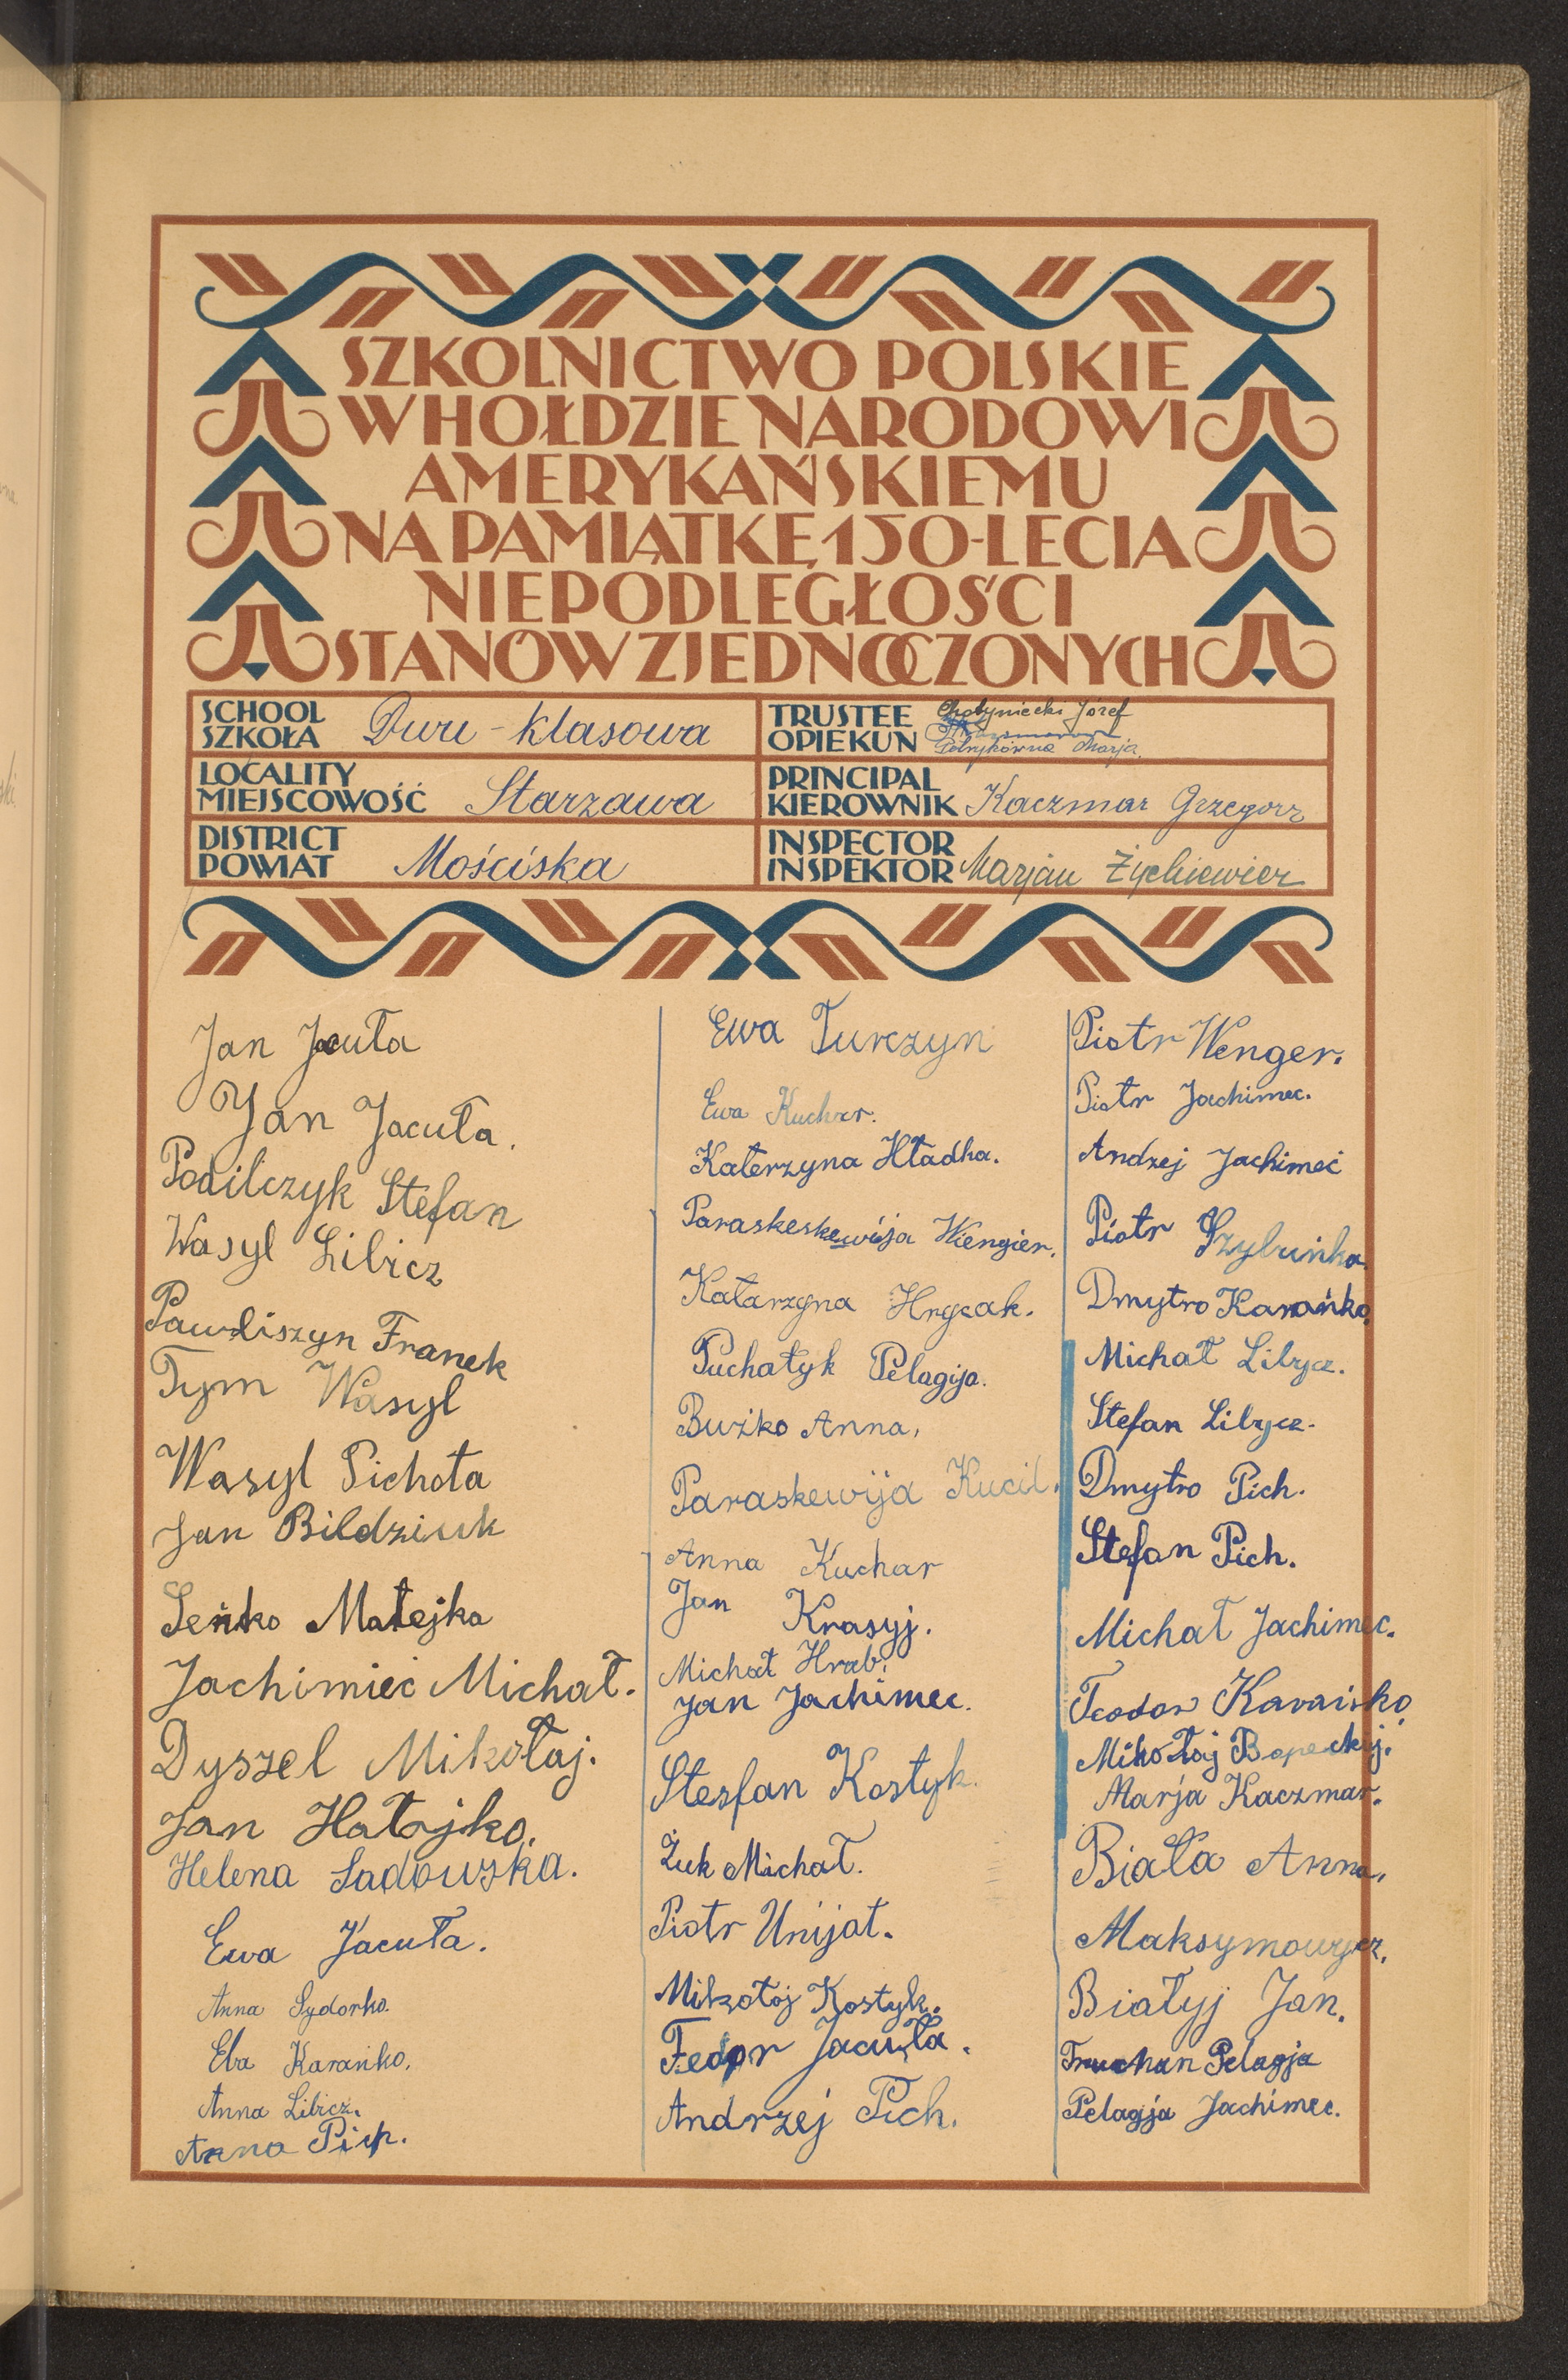 SZKOLNICTWO POLSKIE
W HOŁDZIE NARODOWI
AMERYKAŃSKIEMU
NA PAMIĄTKĘ 150-LECIA
NIEPODLEGŁOŚCI
STANÓW ZJEDNOCZONYCH
SCHOOL
SZKOŁA Dwu-klasowa
LOCALITY
MIEJSCOWOŚĆ Starzawa
DISTRICT
POWIAT Mościska
TRUSTEE Chotyniecki Józef
OPIEKUN
Petrykówna Marja.
PRINCIPAL
KIEROWNIK Kaczmar Grzegorz
INSPECTOR
INSPEKTOR Marjan Żychiewicz
Jan Jacuła
Jan Jacuła.
Podilczyk Stefan
Wasyl Libicz
Pawliszyn Franek
Tym Wasyl
Wasyl Pichota
Jan Bildziuk
Seńko Matejka
Jachimieć Michał.
Dyszel Mikołaj.
Jan Hałajko.
Helena Sadowska.
Ewa Jacuła.
Anna Sydorko.
Eba Karańko.
Anna Libicz.
Anna Pich.
Ewa Turczyn
Ewa Kuchar.
Katerzyna Hładha.
Paraskeskewija Wengier.
Katarzyna Hrycak.
Puchatyk Pelagija.
Buźko Anna.
Paraskewija Kucil.
Anna Kuchar
Jan Krasyj.
Michał Hrab.
Jan Jachimec.
Stesfan Kostyk.
Żuk Michał.
Piotr Unijat.
Mikołaj Kostyk.
Fedor Jacuła.
Andrzej Pich.
Piotr Wenger.
Piotr Jachimec.
Andzej Jachimeć
Piotr Szybuńka.
Dmytro Karańko.
Michał Libycz.
Stefan Libycz.
Dmytro Pich.
Stefan Pich.
Michał Jachimec.
Teodor Karaińko.
Mikołaj
Marja Kaczmar.
Biała Anna.
Maksymowycz.
Białyj Jan.
Truchan Pelagja
Pelagja Jachimec.